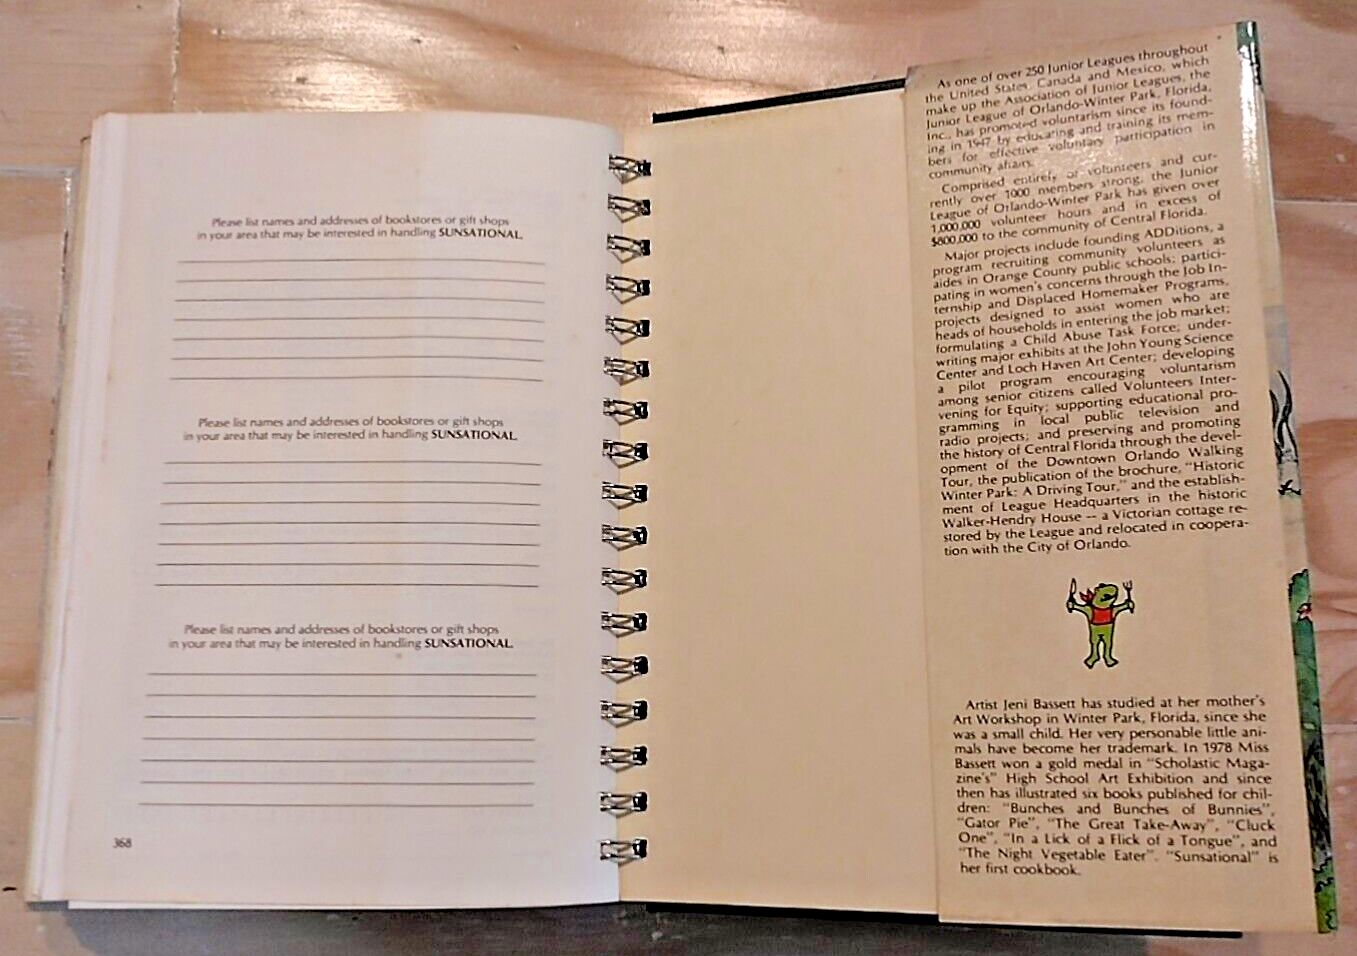 Please list names and addresses of bookstores or gift shops
in your area that may be interested in handling SUNSATIONAL.
Please list names and addresses of bookstores or gift shops
in your area that may be interested in handling SUNSATIONAL.
Please list names and addresses of bookstores or gift shops
in your area that may be interested in handling SUNSATIONAL.
368
As one of over 250 Junior Leagues throughout
the United States, Canada and Mexico, which
make up the Association of Junior Leagues, the
Junior League of Orlando-Winter Park, Florida,
Inc., has promoted voluntarism since its found-
ing in 1947 by educating and training its mem-
bers for effective voluntary participation in
community affairs.
Comprised entirely of volunteers and cur-
rently over 1000 members strong, the Junior
League of Orlando-Winter Park has given over
1,000,000 volunteer hours and in excess of
$800,000 to the community of Central Florida.
Major projects include founding ADDitions, a
program recruiting community volunteers as
aides in Orange County public schools; partici-
pating in women's concerns through the Job In-
ternship and Displaced Homemaker Programs,
projects designed to assist women who are
heads of households in entering the job market;
formulating a Child Abuse Task Force; under-
writing major exhibits at the John Young Science
Center and Loch Haven Art Center; developing
a pilot program encouraging voluntarism
among senior citizens called Volunteers Inter-
vening for Equity; supporting educational pro-
gramming in local public television and
radio projects; and preserving and promoting
the history of Central Florida through the devel-
opment of the Downtown Orlando Walking
Tour, the publication of the brochure, "Historic
Winter Park: A Driving Tour," and the establish-
ment of League Headquarters in the historic
Walker-Hendry House -- a Victorian cottage re-
stored by the League and relocated in coopera-
tion with the City of Orlando.
Artist Jeni Bassett has studied at her mother's
Art Workshop in Winter Park, Florida, since she
was a small child. Her very personable little ani-
mals have become her trademark. In 1978 Miss
Bassett won a gold medal in "Scholastic Maga-
zine's" High School Art Exhibition and since
then has illustrated six books published for chil-
dren: "Bunches and Bunches of Bunnies",
"Gator Pie", "The Great Take-Away", "Cluck
One", "In a Lick of a Flick of a Tongue", and
"The Night Vegetable Eater". "Sunsational" is
her first cookbook.